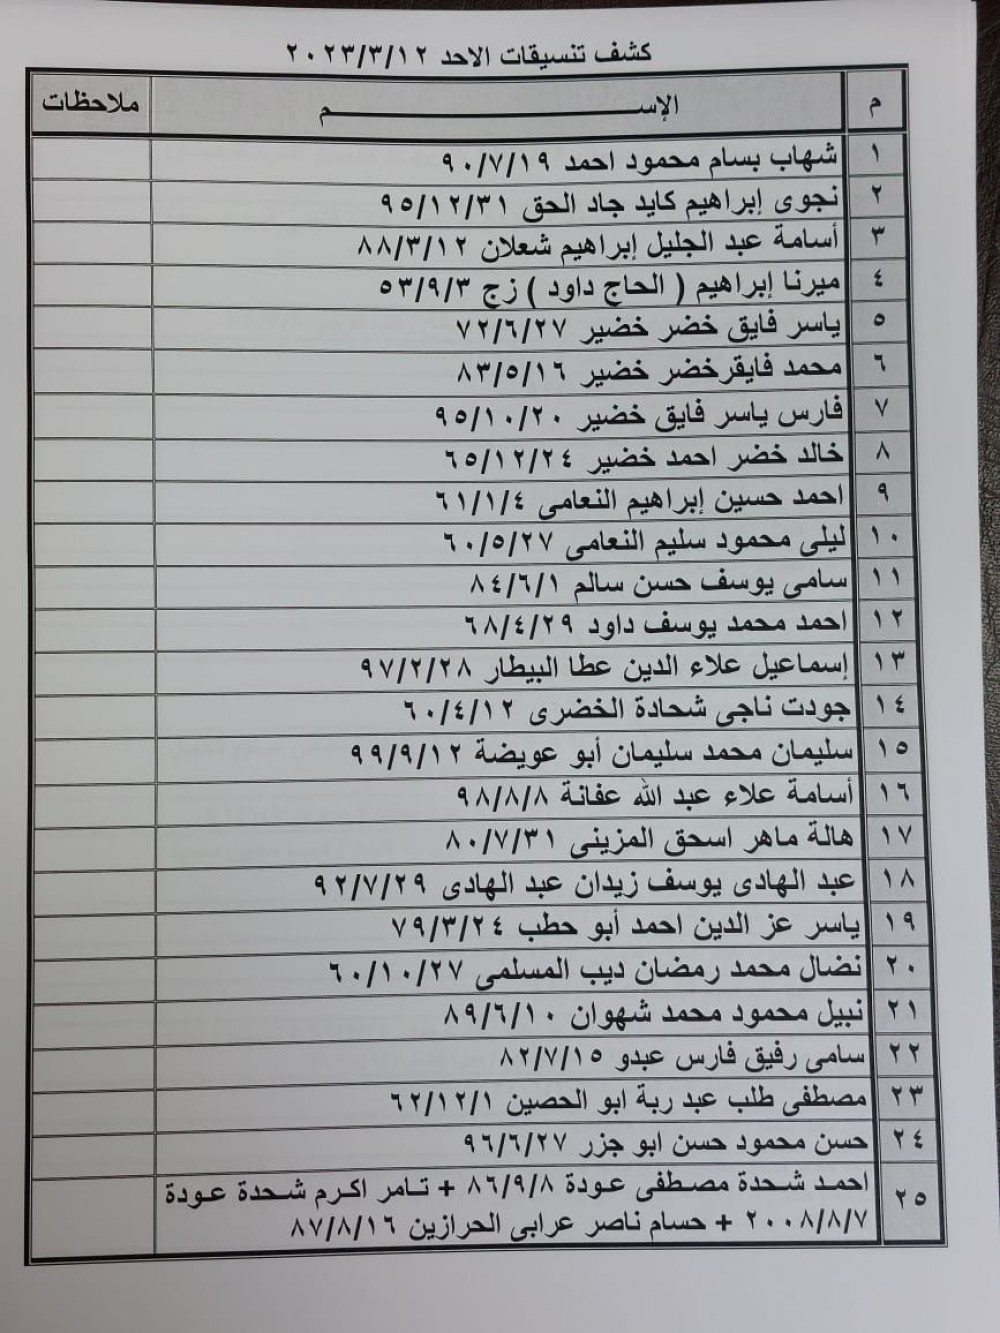 كشف تنسيقات الاحد ٢٠٢٣/٣/١٢
م الإســـــــــــــــــم ملاحظات
١ شهاب بسام محمود احمد ٩٠/٧/١٩
٢ نجوى إبراهيم كايد جاد الحق ٩٥/١٢/٣١
٣ أسامة عبد الجليل إبراهيم شعلان ٨٨/٣/١٢
٤ ميرنا إبراهيم ( الحاج داود ) زج ٥٣/٩/٣
٥ ياسر فايق خضر خضير ٧٢/٦/٢٧
٦ محمد فايقرخضر خضير ٨٣/٥/١٦
٧ فارس ياسر فايق خضير ٩٥/١٠/٢٠
٨ خالد خضر احمد خضير ٦٥/١٢/٢٤
٩ احمد حسين إبراهيم النعامى ٦١/١/٤
١٠ ليلى محمود سليم النعامى ٦٠/٥/٢٧
١١ سامى يوسف حسن سالم ٨٤/٦/١
١٢ احمد محمد يوسف داود ٦٨/٤/٢٩
١٣ إسماعيل علاء الدين عطا البيطار ٩٧/٢/٢٨
١٤ جودت ناجى شحادة الخضرى ٦٠/٤/١٢
١٥ سليمان محمد سليمان أبو عويضة ٩٩/٩/١٢
١٦ أسامة علاء عبد الله عفانة ٩٨/٨/٨
١٧ هالة ماهر اسحق المزينى ٨٠/٧/٣١
١٨ عبد الهادى يوسف زيدان عبد الهادى ٩٢/٧/٢٩
١٩ ياسر عز الدين احمد أبو حطب ٧٩/٣/٢٤
٢٠ نضال محمد رمضان ديب المسلمى ٦٠/١٠/٢٧
٢١ نبيل محمود محمد شهوان ٨٩/٦/١٠
٢٢ سامى رفيق فارس عبدو ٨٢/٧/١٥
٢٣ مصطفى طلب عبد ربة ابو الحصين ٦٢/١٢/١
٢٤ حسن محمود حسن ابو جزر ٩٦/٦/٢٧
٢٥ احمد شحدة مصطفى عودة ٨٦/٩/٨ + تامر اكرم شحدة عودة
٢٠٠٨/٨/٧ + حسام ناصر عرابى الحرازين ٨٧/٨/١٦